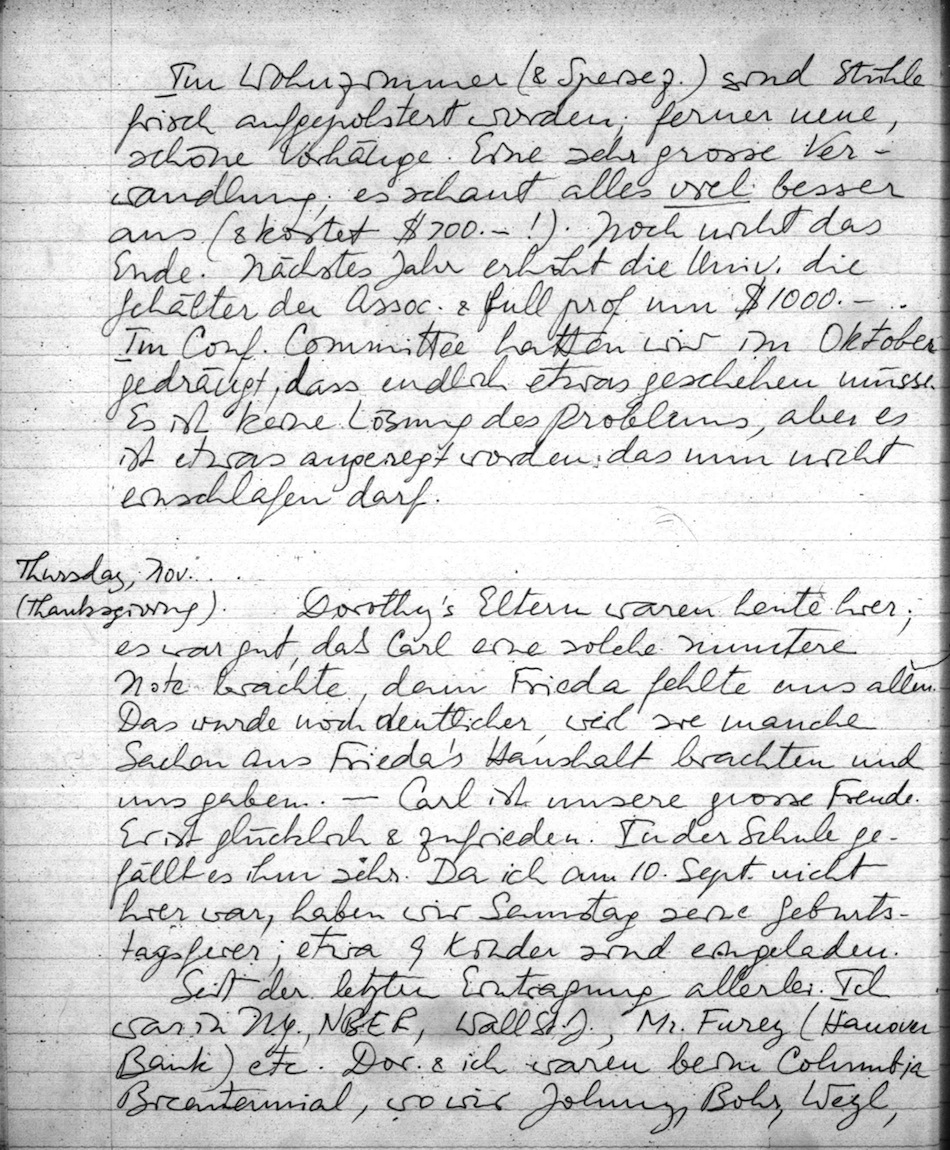 Im Wohnzimmer (& Speisez.) sind Stühle
frisch aufgepolstert worden; ferner neue,
schöne Vorhänge. Eine sehr grosse Ver-
wandlung; es schaut alles viel besser
aus (& kostet $700.- !). Noch nicht das
Ende. Nächstes Jahr erhöht die Univ. die
Gehälter der Assoc. & full prof um $1000.- ..
Im Conf. Committee hatten wir im Oktober
gedrängt, dass endlich etwas geschehen müsse.
Es ist keine Lösung des Problems, aber es
ist etwas angeregt worden, das nun nicht
einschlafen darf.
Thursday, Nov. . .
(Thanksgiving). Dorothy's Eltern waren heute hier;
es war gut, daß Carl eine solche muntere
Note brachte, denn Frieda fehlte uns allen.
Das wurde noch deutlicher, weil sie manche
Sachen aus Frieda's Haushalt brachten und
uns gaben. — Carl ist unsere grosse Freude.
Er ist glücklich & zufrieden. In der Schule ge-
fällt es ihm sehr. Da ich am 10. Sept. nicht
hier war, haben wir Samstag seine Geburts-
tagsfeier; etwa 9 Kinder sind eingeladen.
Seit der letzten Eintragung allerlei. Ich
war in NY, NBER, Wall St. J., Mr. Furey (Hanover
Bank) etc. Dor. & ich waren beim Columbia
Bicentennial, wo wir Johnny, Bohr, Weyl,